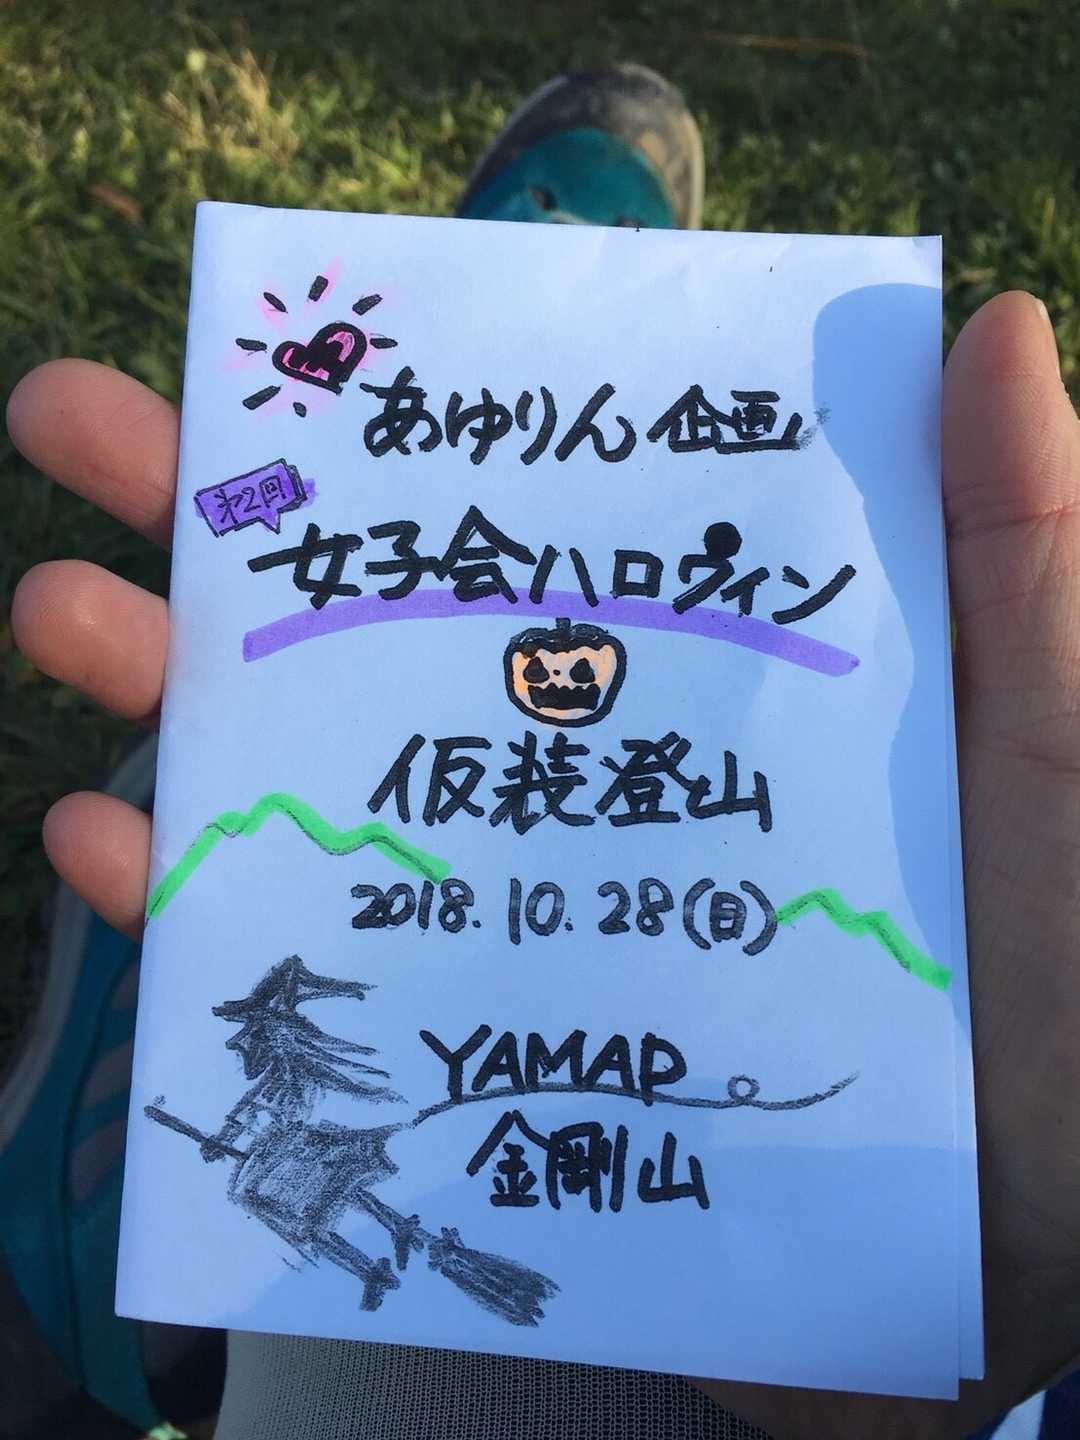 あゆりん企画
第2回
女子会ハロウィン
仮装登山
2018.10.28(日)
YAMAP
金剛山